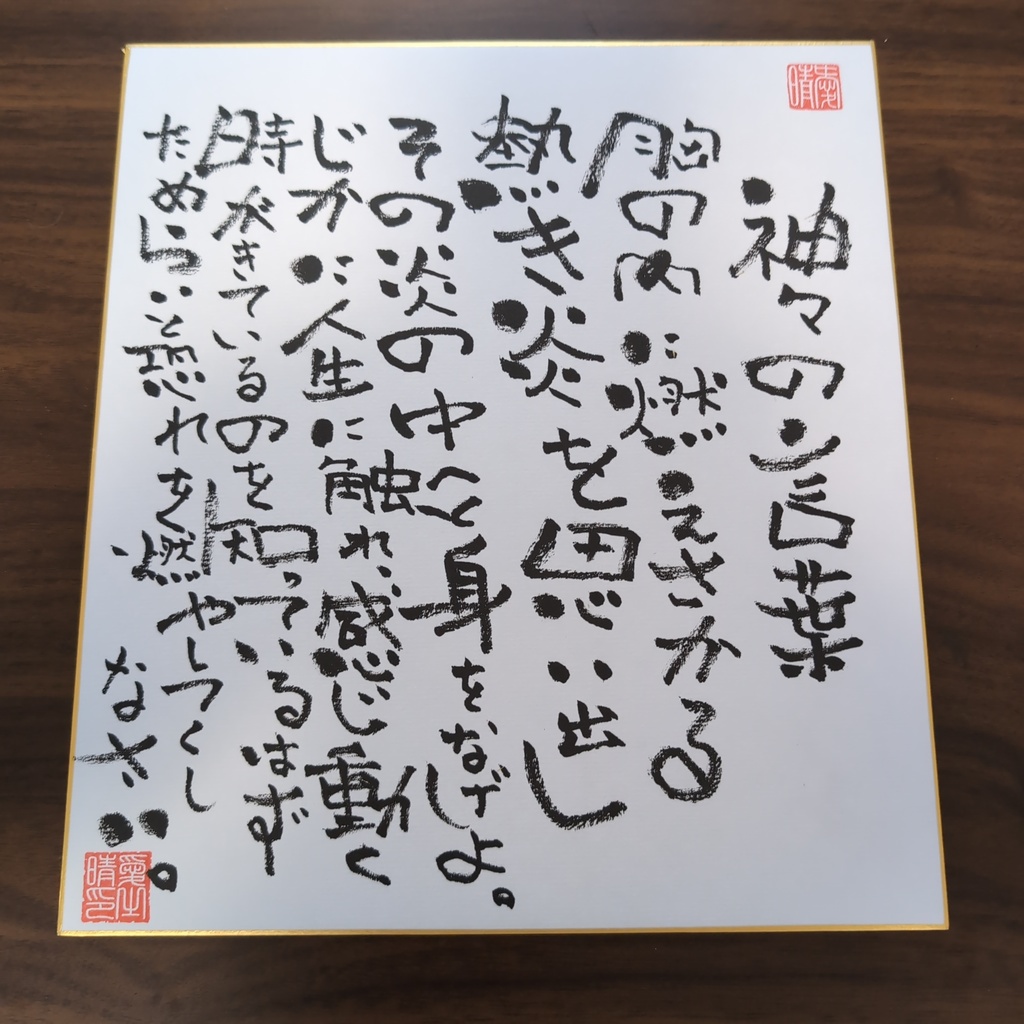 愛晴
神々の言葉
胸の内に燃えさかる
熱き炎を思い出し
その炎の中へと身をなげよ。
じかに人生に触れ、感じ動く
時がきているのを知っているはず
ためらいと恐れを燃やしつくし
なさい。